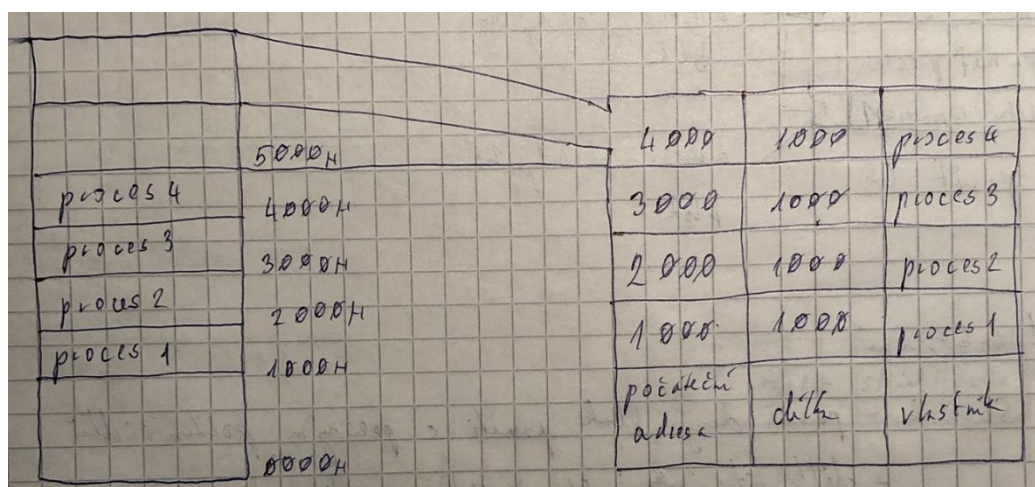 5000H
proces 4
4000H
proces 3
3000H
proces 2
2000H
proces 1
1000H
0000H
4000 1000 proces 4
3000 1000 proces 3
2000 1000 proces 2
1000 1000 proces 1
počáteční
adresa
délka
vlastník